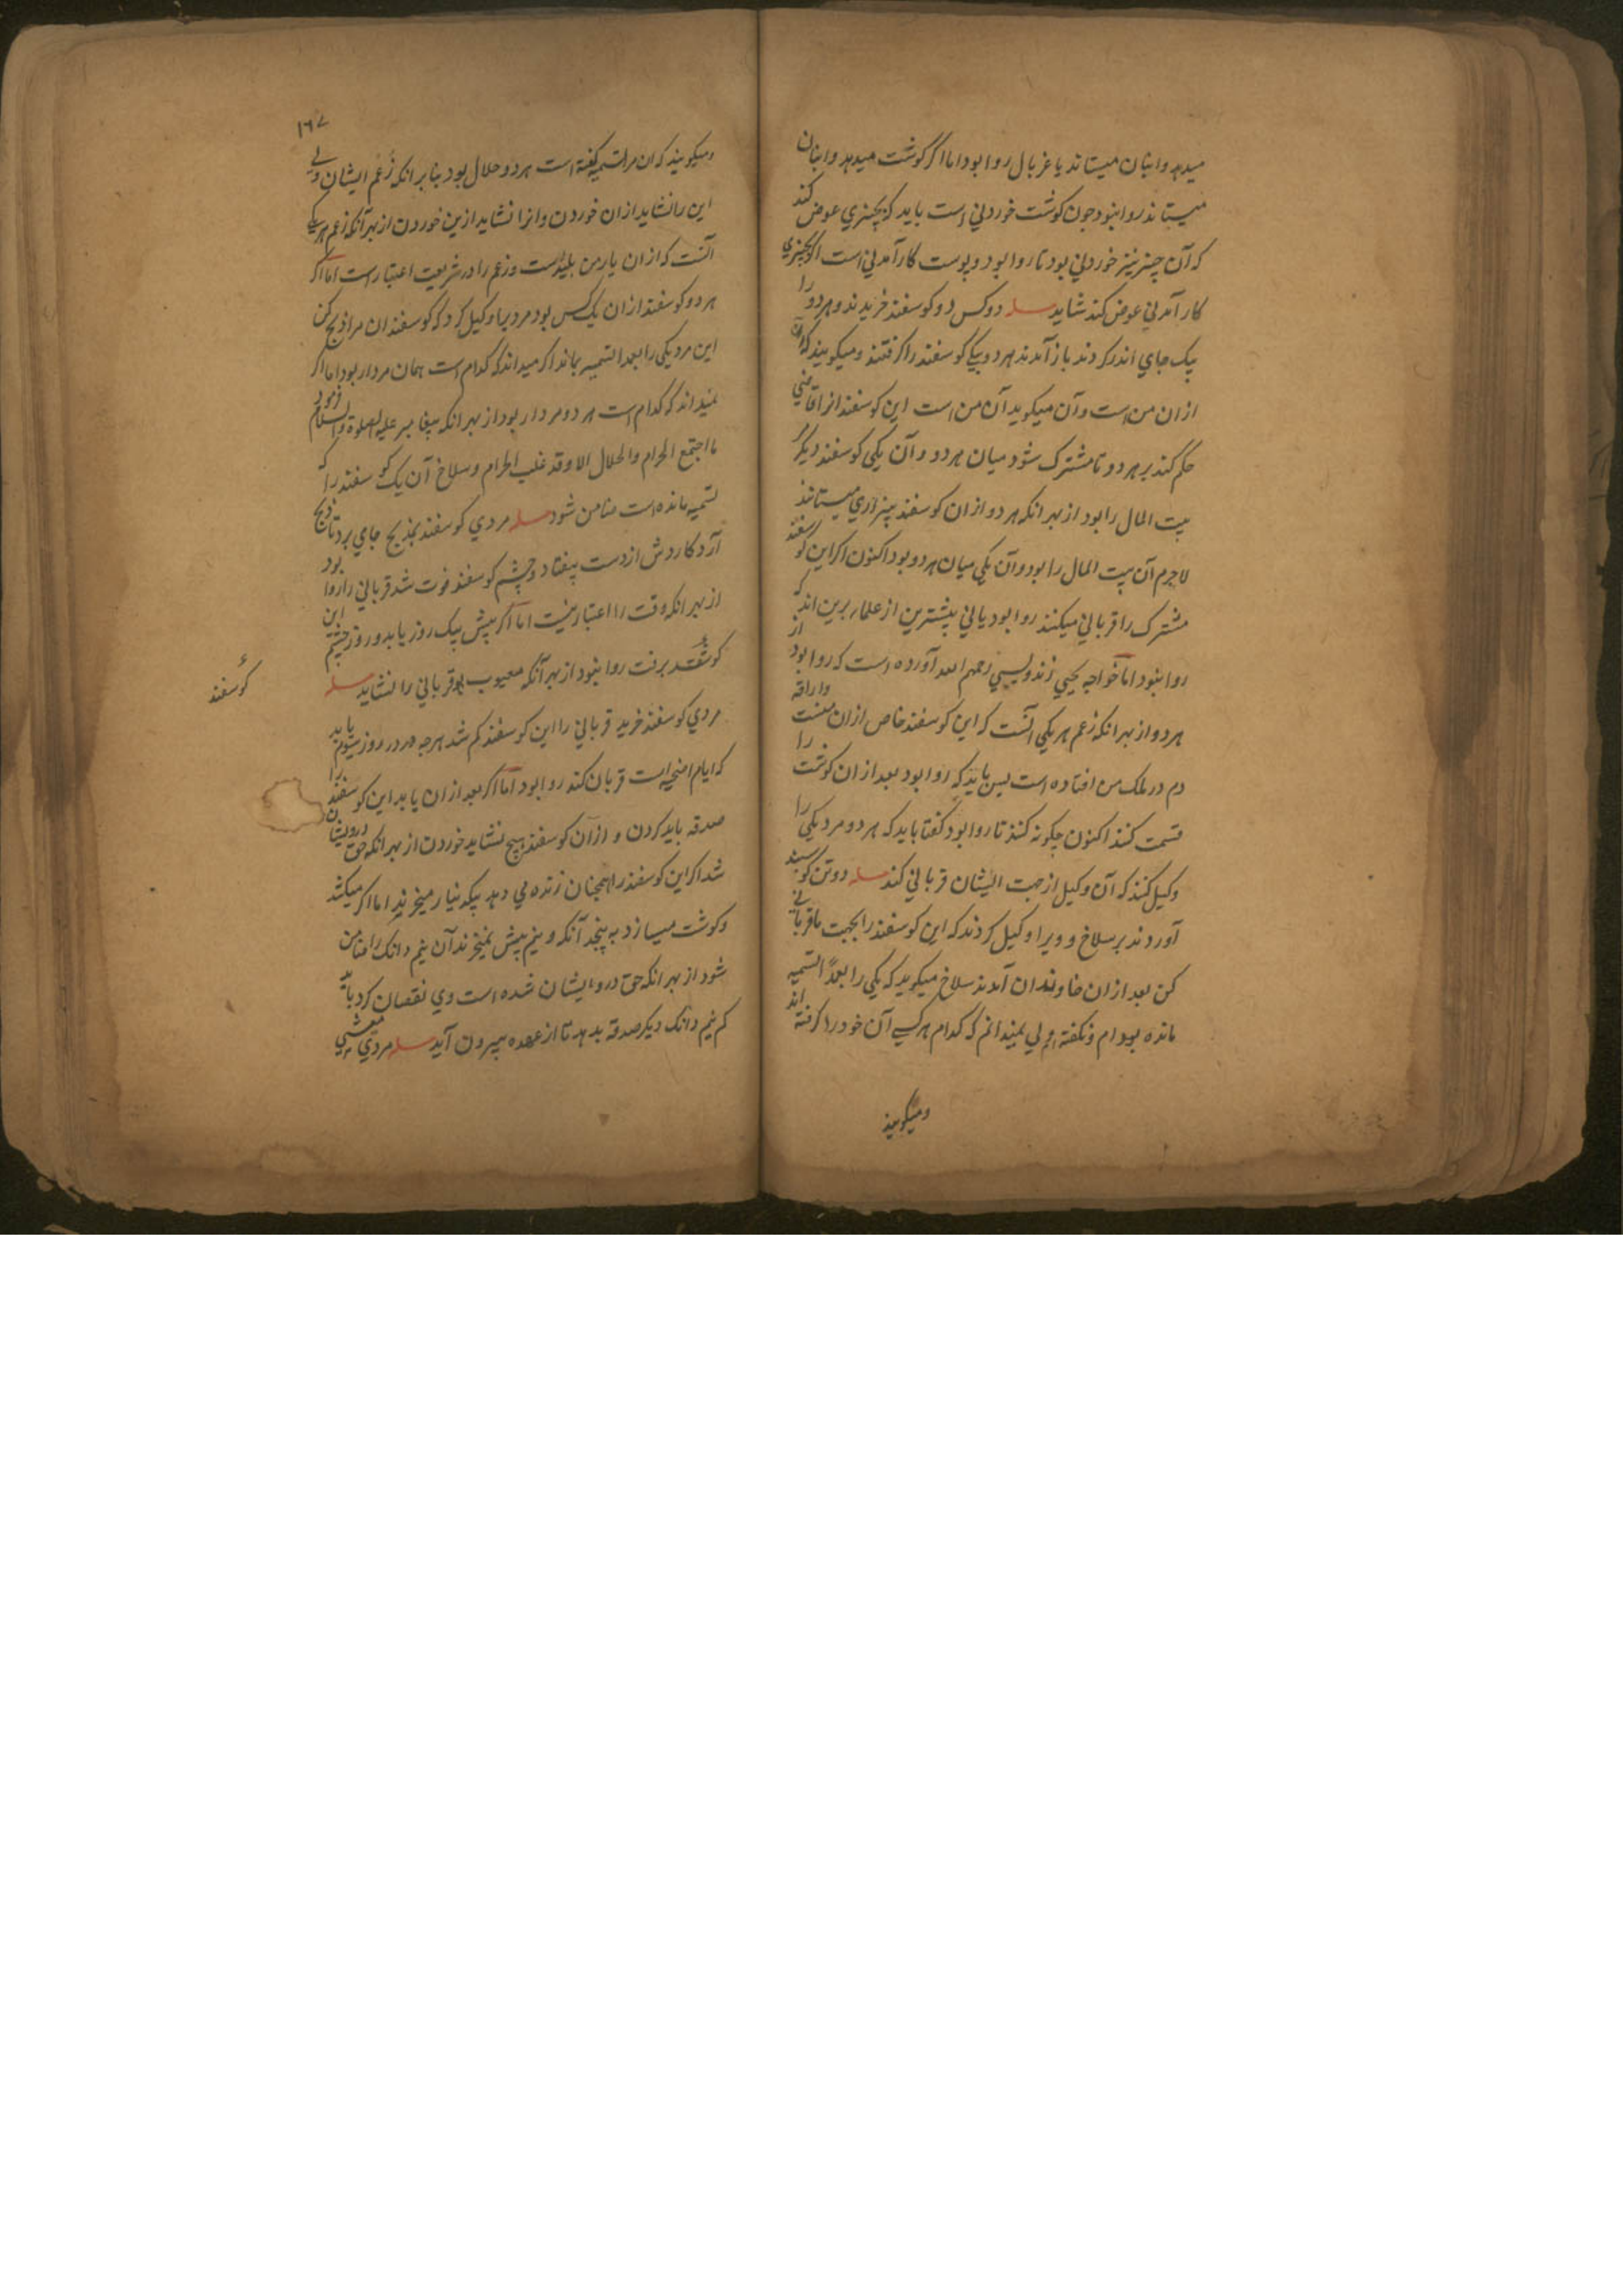 میدهد وانبان میستاند یا غربال روا بود اما اکر کوشت میدهد وانبان
میستاند روا نبود جون کوشت خوردنی است باید که بچیزی عوض کند
که آن چیز نیز خوردنی بود تا روا بود و پوست کارآمدنی است اکر بچیزی
کارآمدنی عوض کند شاید مسله دو کس دو کوسفند خریدند و هر دو را
بیک جای اندر کردند باز آمدند هر دو یکی کوسفند را کرفتند و میکویند که آن
ازان من است و آن میکوید آن من است این کوسفند انرا قاضی
حکم کند بر هر دو تا مشترک شود میان هر دو و آن یکی کوسفند دیکر
بیت المال را بود از بهر انکه هر دو ازان کوسفند بیزاری میستانند
لاجرم آن بیت المال را بود و آن یکی میان هر دو بود اکنون اکر این کوسفند
مشترک را قربانی میکنند روا بود یانی بیشترین از علما برین اند که
روا نبود اما خواجه یحیی زندویسی رحمهم الله آورده است که روا بود از
هر دو از بهر انکه زعم هر یکی آنست که این کوسفند خاص ازان منست واراقه
دم در ملک من افتاده است پس باید که روا بود بعد ازان کوشت را
قسمت کنند اکنون جکونه کنند تا روا بود کفتا باید که هر دو مرد یکی را
وکیل کنند که آن وکیل از جهت ایشان قربانی کند مسله دو تن کوسپند
آوردند بر سلاخ و ویرا وکیل کردند که این کوسفند را بجهت ما قربانی
کن بعد ازان خاوندان آمدند سلاخ میکوید که یکی را بعمدا التسمیه
مانده بودم و نکفته ام ولی نمیدانم که کدام هر کسی آن خود را کرفته اند
ومیکویند
١٦٧
ومیکویند که ان مرا تسمیه کفته است هر دو حلال بود بنابر انکه زعم ایشان ولی
این را نشاید ازان خوردن وانرا نشاید ازین خوردن از بهر آنکه زعم هر یکی
آنست که ازان یار من پلیدست و زعم را در شریعت اعتبار است اما اکر
هر دو کوسفند ازان یک کس بود مردیرا وکیل کرد که کوسفندان مرا ذبح کن
این مرد یکی را بعمد التسمیه بماند اکر میداند که کدام است همان مردار بود اما اکر
نمیداند که کدام است هر دو مردار بود از بهر انکه پیغامبر علیه الصلوة والسلام فرمود
ما اجتمع الحرام والحلال الا وقد غلب الحرام وسلاخ آن یک کوسفند را که
تسمیه مانده است ضامن شود مسله مردی کوسفند بمذبح جای برد تا ذبح
آرد کاردش از دست بیفتاد و چشم کوسفند فوت شد قربانی را روا بود
از بهر انکه وقت را اعتبار نیست اما اکر پیش بیک روز یا بدو روز چشم این
کوسفند برفت روا نبود از بهر آنکه معیوب بود قربانی را نشاید مسله
مردی کوسفند خرید قربانی را این کوسفند کم شد هرجه در روز سیوم یابد
که ایام اضحیه است قربان کند روا بود اما اکر بعد ازان یابد این کوسفند را
صدقه باید کردن و ازآن کوسفند هیچ نشاید خوردن از بهر انکه حق درویشان
شد اکر این کوسفند را همچنان زنده می دهد بیکدینار میخرند اما اکر میکشد
وکوشت میسازد به پنجد آنکه و نیم بیش نمیخرند آن نیم دانک را ضامن
شود از بهر انکه حق درویشان شده است وی نقصان کرد باید
کم نیم دانک دیکر صدقه بدهد تا از عهده بیرون آید مسله مردی
کوسفند